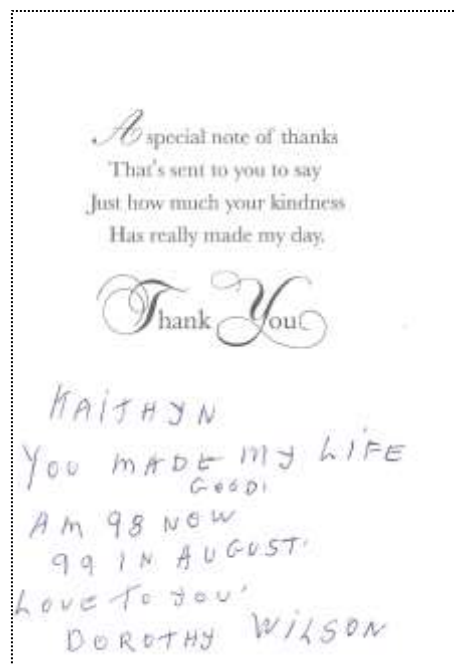 A special note of thanks
That's sent to you to say
Just how much your kindness
Has really made my day.
Thank You
KAITHYN
YOU MADE MY LIFE
GOOD!
AM 98 NOW
99 IN AUGUST.
LOVE TO YOU'
DOROTHY WILSON